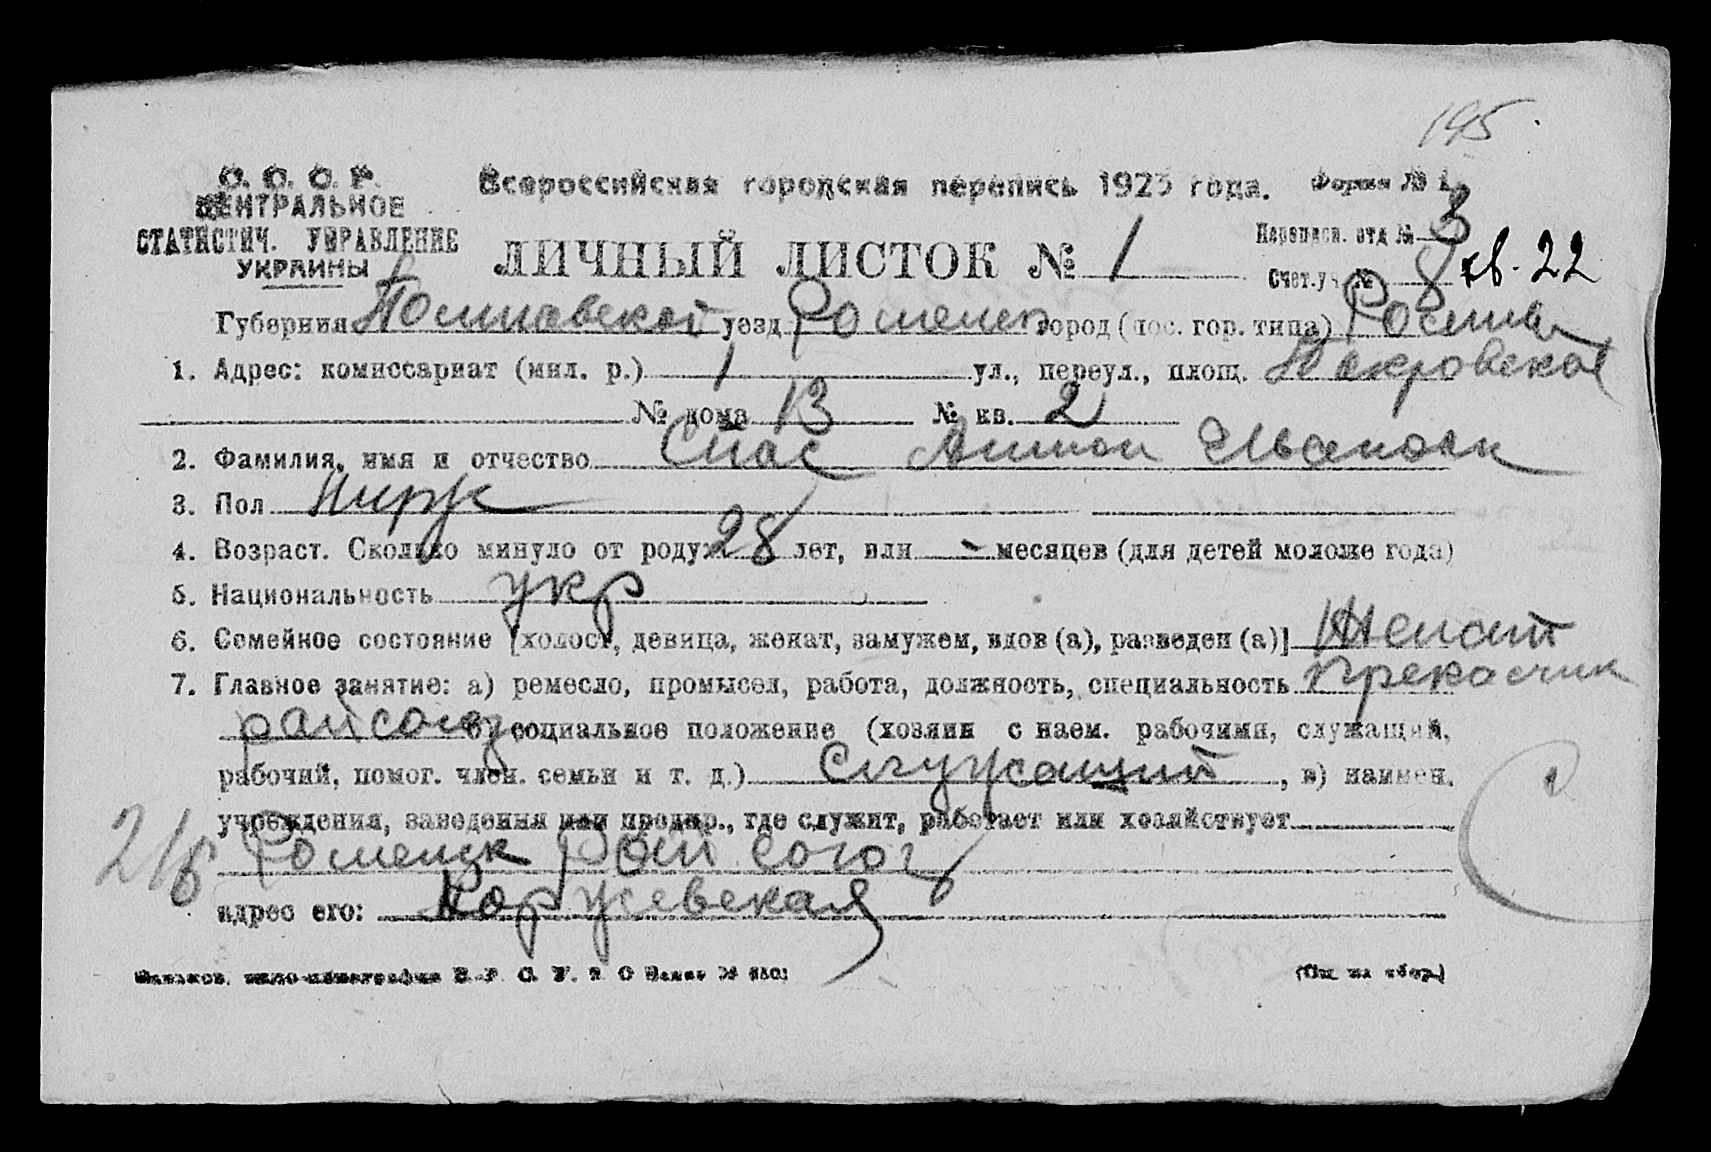 195
С. С. С. Р.
ЦЕНТРАЛЬНОЕ
СТАТИСТИЧ. УПРАВЛЕНИЕ
УКРАИНЫ
Всероссийская городская перепись 1923 года.
Форма № 1
ЛИЧНЫЙ ЛИСТОК № 1
Переписн. отд № 3
Счет.уч. № 8 кв. 22
Губерния Полтавской уезд Роменск город (пос. гор. типа) Ромны
1. Адрес: комиссариат (мил. р.) 1 ул., переул., площ. Покровская
№ дома 13 № кв. 2
2. Фамилия, имя и отчество Спас Антон Иванович
3. Пол Мужск
4. Возраст. Сколько минуло от роду 28 лет, или - месяцев (для детей моложе года)
5. Национальность укр
6. Семейное состояние [холост, девица, женат, замужем, вдов (а), разведен (а)] Женат
7. Главное занятие: а) ремесло, промысел, работа, должность, специальность Приказчик
райсоюз б) социальное положение (хозяин с наем. рабочими, служащий,
рабочий, помог. член. семьи и т. д.) Служащий, в) наимен.
учреждения, заведения или предпр., где служит, работает или хозяйствует
2/6 Роменск Рай союз
адрес его: Коржевская
(См. на обор.)